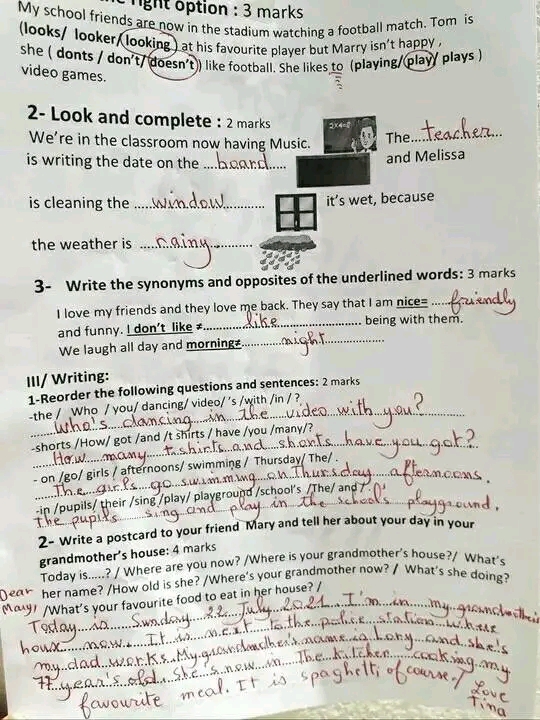 right option : 3 marks
My school friends are now in the stadium watching a football match. Tom is
(looks/ looker/looking) at his favourite player but Marry isn't happy ,
she ( donts / don't/ doesn't) like football. She likes to (playing/play/ plays )
video games.
2- Look and complete : 2 marks
We're in the classroom now having Music. 2x4=8 The...teacher...
is writing the date on the ...board..... and Melissa
is cleaning the .....window............ it's wet, because
the weather is ....rainy............
3- Write the synonyms and opposites of the underlined words: 3 marks
I love my friends and they love me back. They say that I am nice= .....friendly
and funny. I don't like ≠..........like.......................... being with them.
We laugh all day and morning≠..........night.................
III/ Writing:
1-Reorder the following questions and sentences: 2 marks
-the / Who / you/ dancing/ video/ 's /with /in / ?
Who's dancing in the video with you?
-shorts /How/ got /and /t shirts / have /you /many/?
How many t-shirts and shorts have you got?
- on /go/ girls / afternoons/ swimming / Thursday/ The/ .
The girls go swimming on Thursday afternoons.
-in /pupils/ their /sing /play/ playground /school's /The/ and / .
The pupils sing and play in the school's playground.
2- Write a postcard to your friend Mary and tell her about your day in your
grandmother's house: 4 marks
Today is.....? / Where are you now? /Where is your grandmother's house?/ What's
her name? /How old is she? /Where's your grandmother now? / What's she doing?
/What's your favourite food to eat in her house? /
Dear Mary,
Today is Sunday 22 July 2021. I'm in my grandmother's
house now. It is next to the police station where
my dad works. My grandmother's name is Lory and she's
77 year's old. She's now in the kitchen cooking my
favourite meal. It is spaghetti of course!
Love
Tina